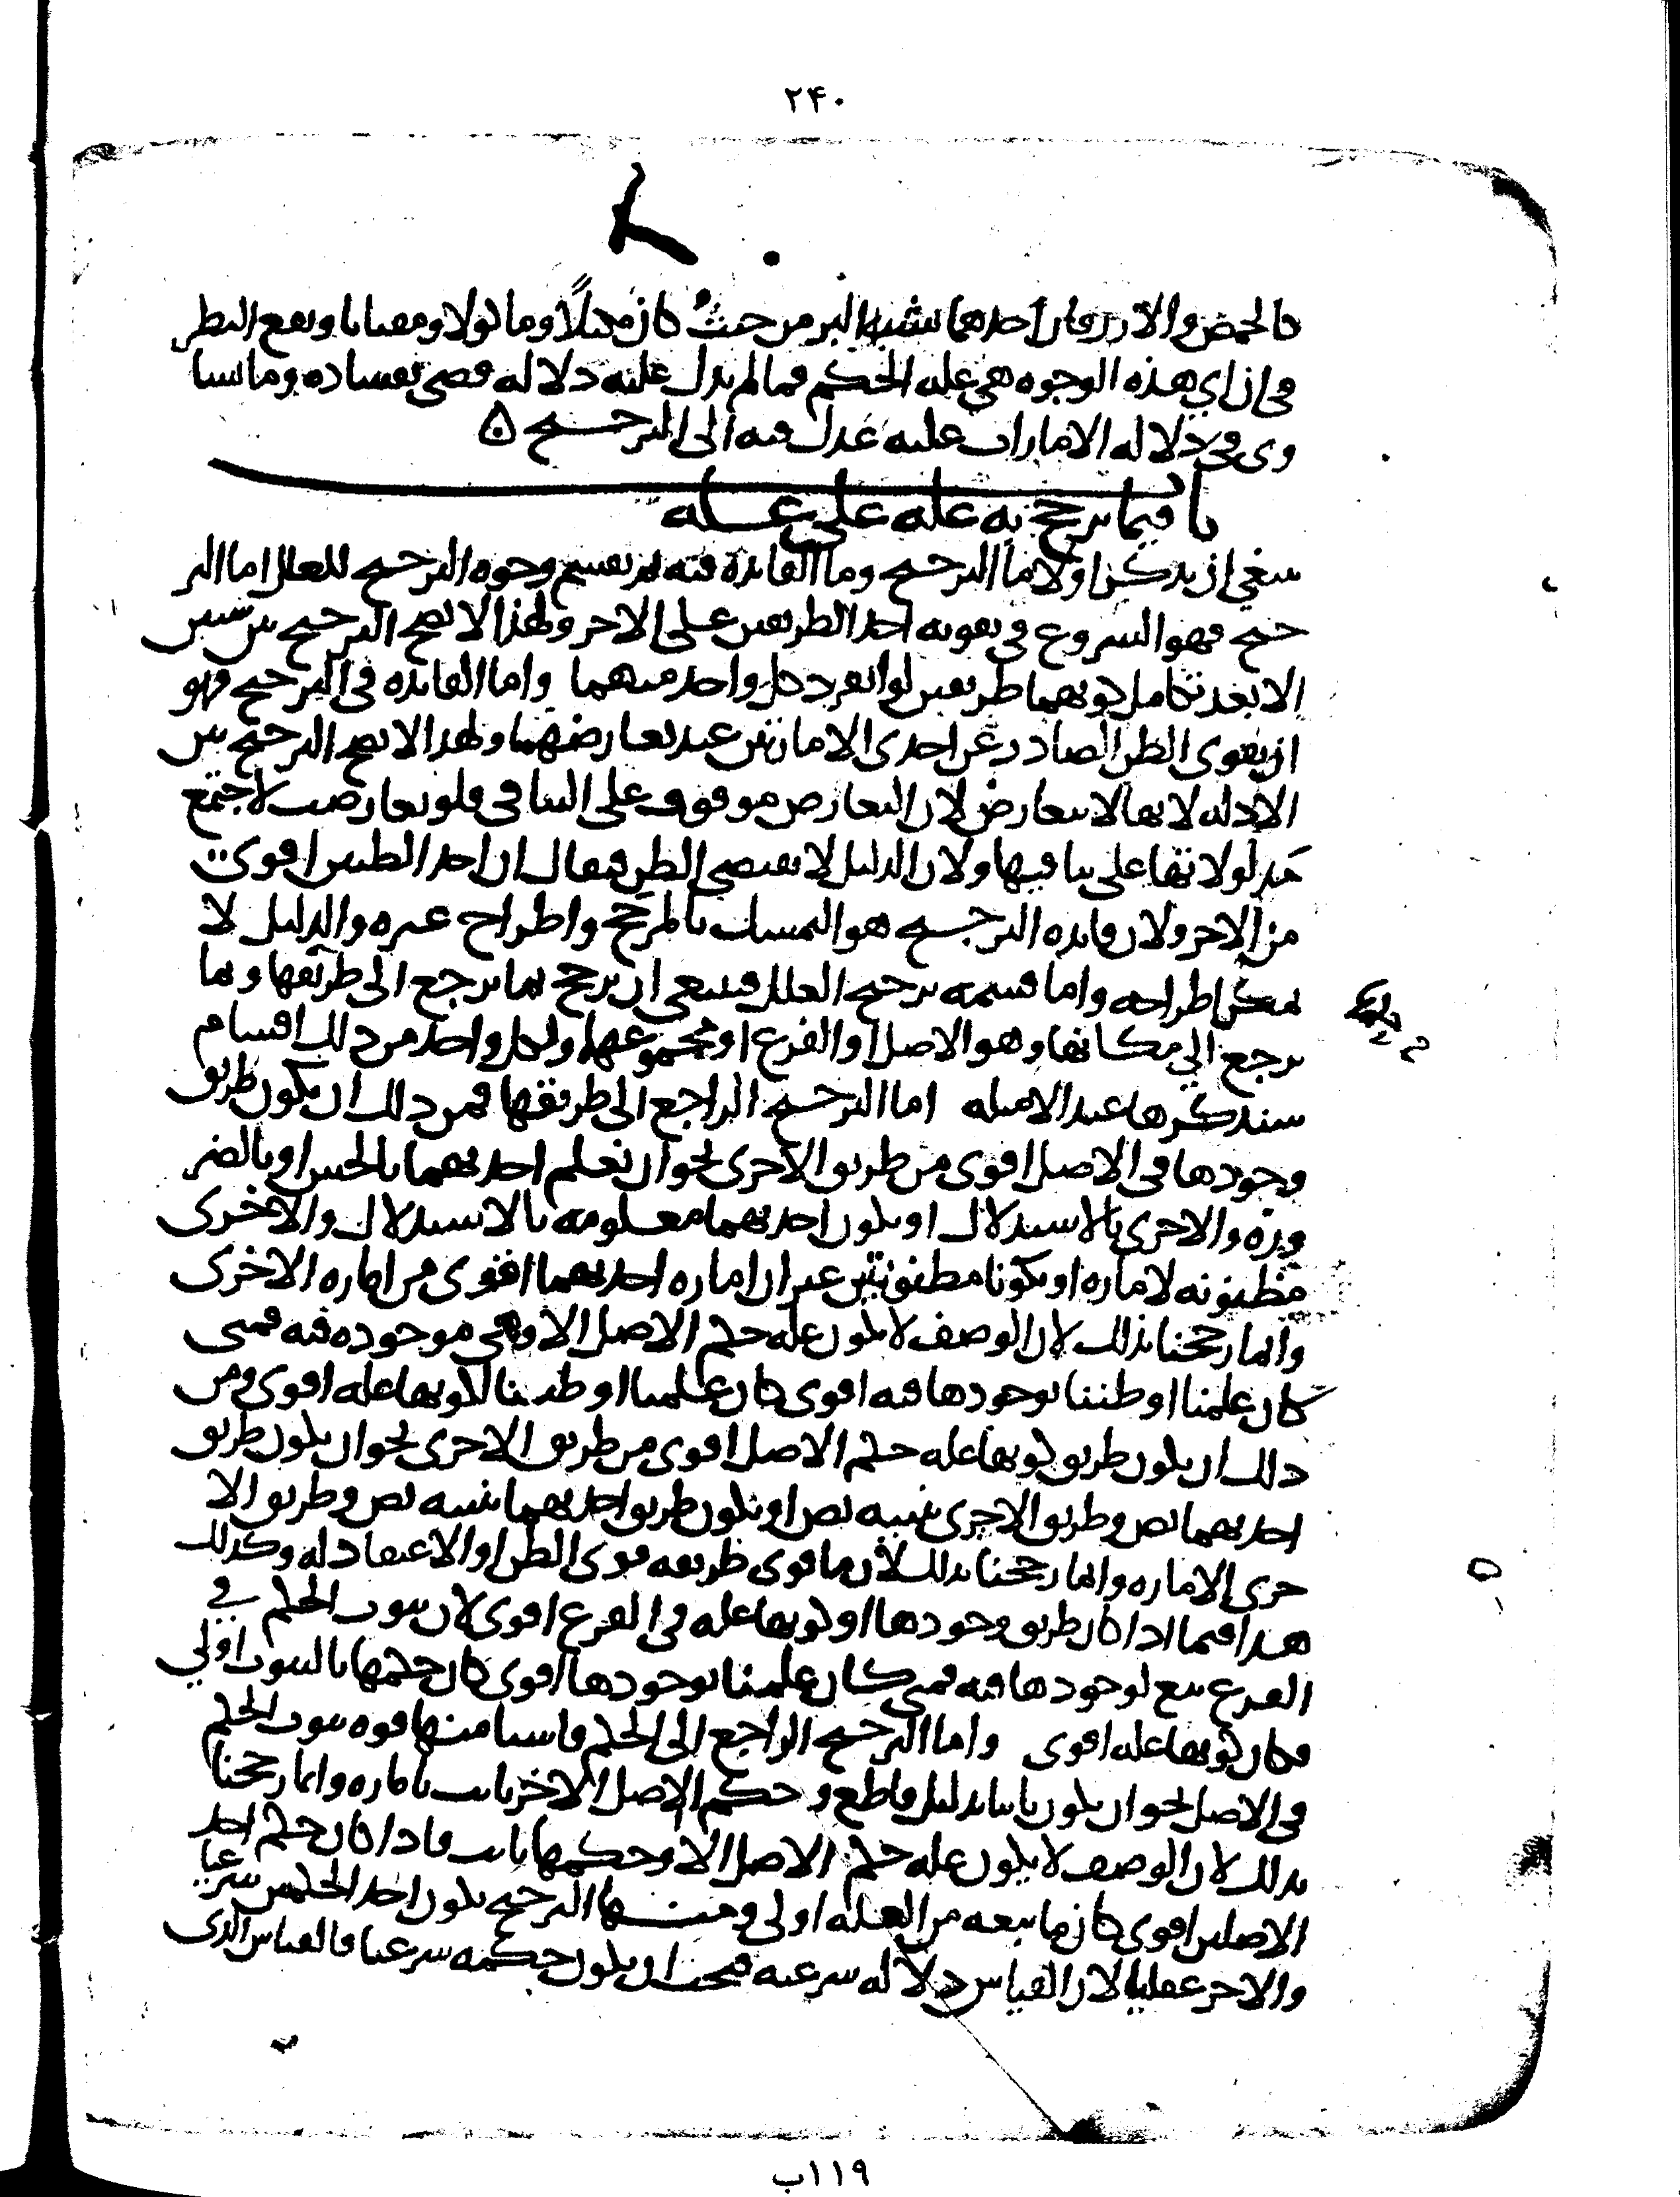 ٢۴٠
كالحمص والارز وان احدهما يشبه البر من حيث كان مكيلا وماكولا ومقتاتا ويقع النظر
في ان اي هذه الوجوه هي علة الحكم فما لم يدل عليه دلالة قضي بفساده وما تسا
وى في دلالة الامارات عليه عدل فيه الى الترجيح ه
باب فيما يرجح به علة على علة
ينبغي ان يذكر اولا ما الترجيح وما الفايدة فيه ثم يقسم وجوه الترجيح للعلل اما التر
جيح فهو الشروع في تقوية احد الطريقين على الاخر ولهذا لا يصح الترجيح بين شيين
الا بعد تكامل كونهما طريقين لو انفرد كل واحد منهما واما الفايدة في الترجيح فهو
ان يقوى الظن الصادر عن احدى الامارتين عند تعارضهما ولهذا لا يصح الترجيح بين
الادلة لانها لا تتعارض لان التعارض موقوف على التنافي فلو تعارضت لاجتمع
مدلولاتها على تنافيها ولان الدليل لا يقتضي الظن فيقال ان احد الظنين اقوى
من الاخر ولان فايدة الترجيح هو التمسك بالمرجح واطراح غيره والدليل لا
يمكن اطراحه واما قسمة ترجيح العلل فينبغي ان يرجح بما يرجع الى طريقها وبما
يرجع الى مكانها وهو الاصل او الفرع او مجموعهما ولكل واحد من ذلك اقسام
سنذكرها عند الامثلة اما الترجيح الراجع الى طريقها فمن ذلك ان يكون طريق
وجودها في الاصل اقوى من طريق الاخرى نحو ان تعلم احديهما بالحس او بالضر
ورة والاخرى بالاستدلال او يكون احديهما معلومة بالاستدلال والاخرى
مظنونة لامارة او يكونا مظنونتين غير ان امارة احديهما اقوى من امارة الاخرى
وانما رجحنا بذلك لان الوصف لا يكون علة حكم الاصل الا وهي موجودة فيه فمتى
كان علمنا او ظننا بوجودها فيه اقوى كان علمنا او ظننا لكونها علة اقوى ومن
ذلك ان يكون طريق كونها علة حكم الاصل اقوى من طريق الاخرى نحو ان يكون طريق
احديهما نص وطريق الاخرى تنبيه نص او يكون طريق احديهما تنبيه نص وطريق الا
خرى الامارة وانما رجحنا بذلك لان ما قوى طريقه قوى الظن او الاعتقاد له وكذلك
هذا فيما اذا كان طريق وجودها او كونها علة في الفرع اقوى لان ثبوت الحكم في
الفرع يتبع لوجودها فيه فمتى كان علمنا بوجودها اقوى كان حكمها بالثبوت اولي
فكان كونها علة اقوى واما الترجيح الراجع الى الحكم فاشيا منها قوة ثبوت الحكم
في الاصل نحو ان يكون ثابتا بدليل قاطع وحكم الاصل الاخر ثابت بامارة وانما رجحنا
بذلك لان الوصف لا يكون علة حكم الاصل الا وحكمها ثابت فاذا كان حكم احد
الاصلين اقوى كان ما يتبعه من العلة اولى ومنها الترجيح بكون احد الحكمين شرعيا
والاخر عقليا لان القياس دلالة شرعية فيجب ان يكون حكمه شرعيا فالقياس الذي
١١٩ب